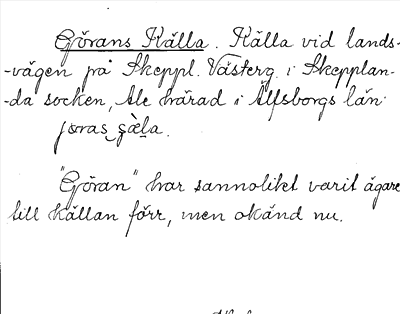 Görans Källa. Källa vid lands-
-vägen på Skeppl. Västerg. i Skepplan-
-da socken, Ale härad i Älfsborgs län.
"Göran" har sannolikt varit ägare
till källan förr, men okänd nu.